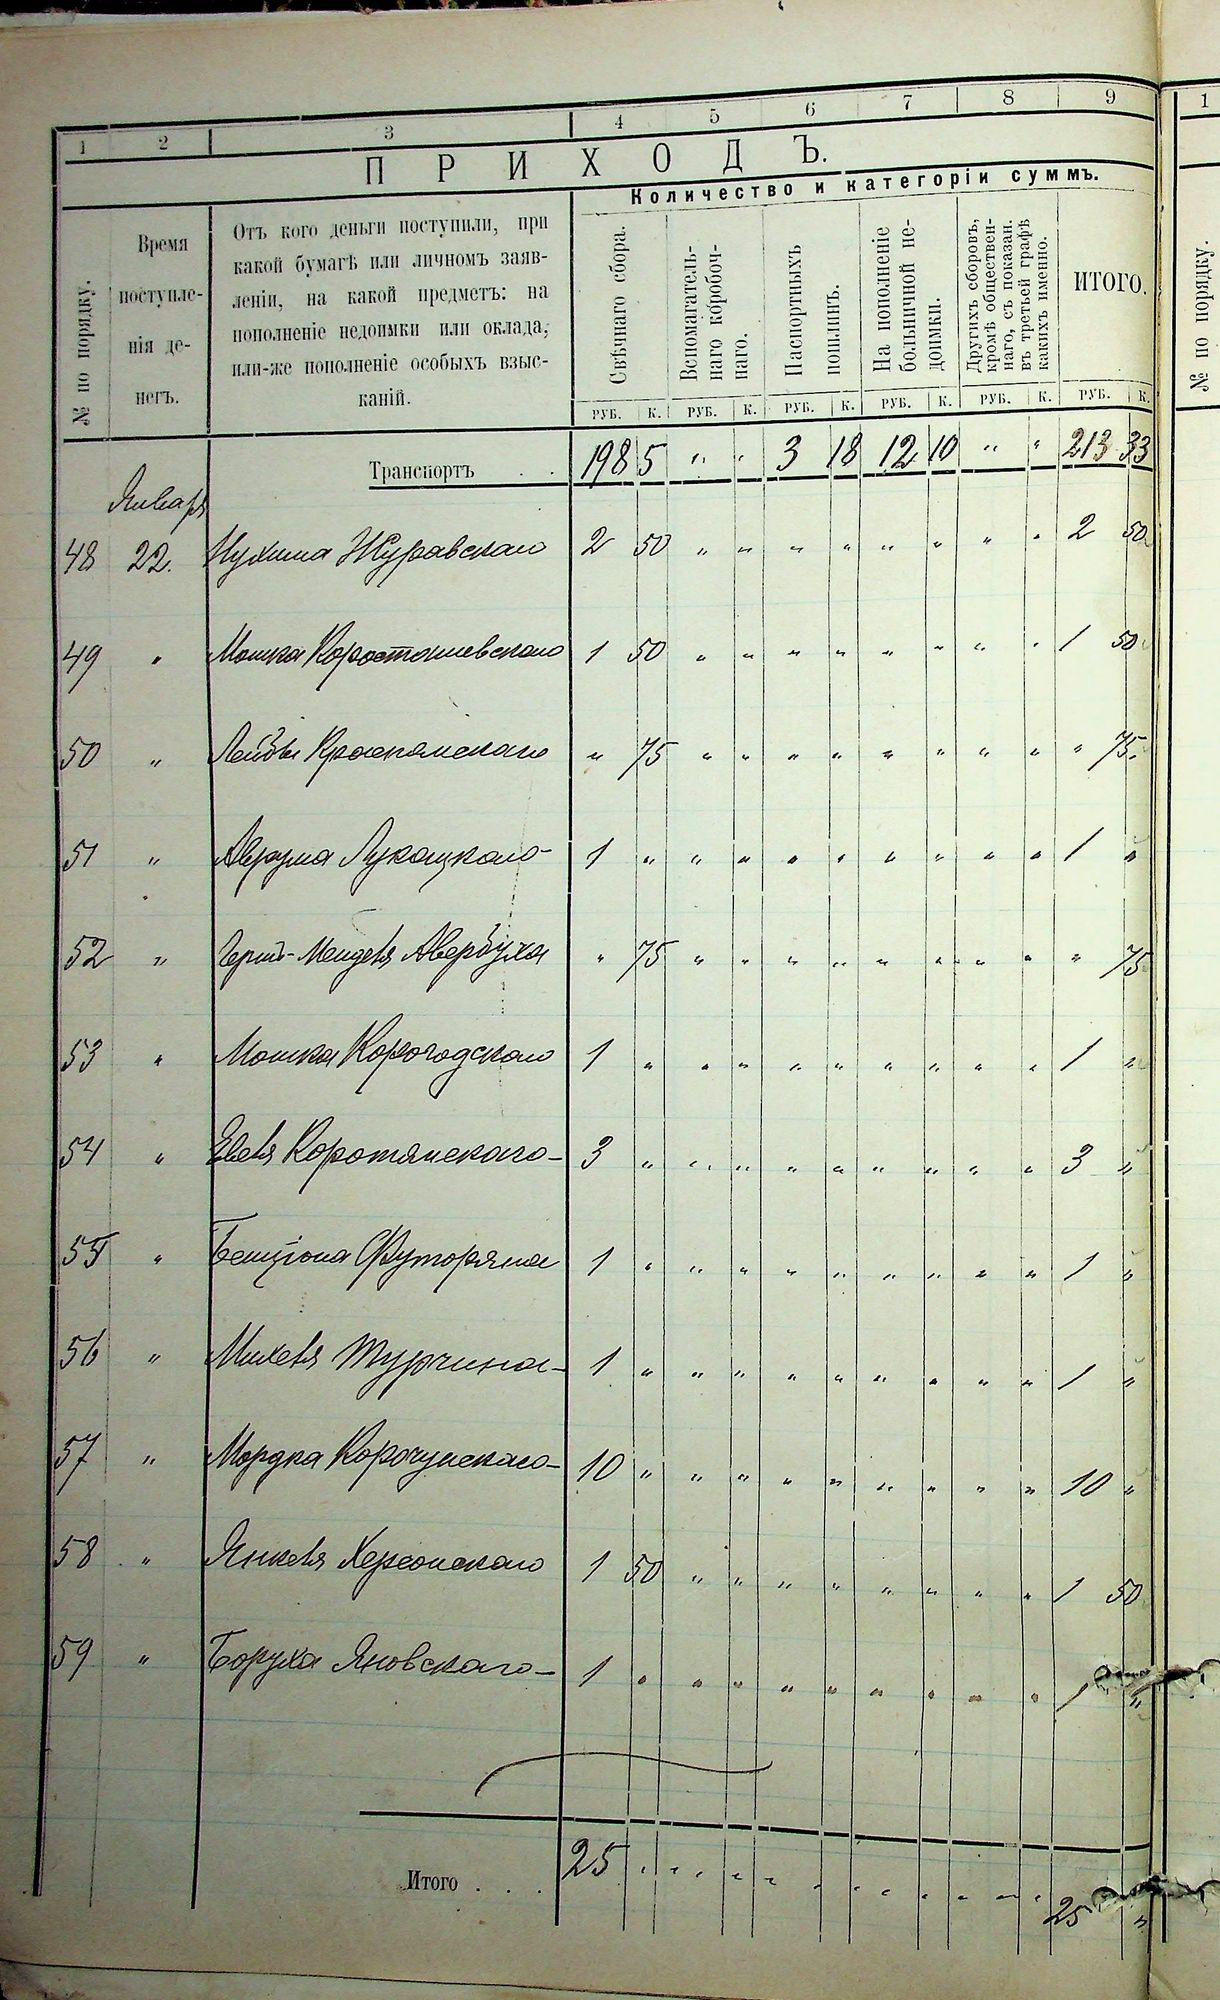 1 2 3 4 5 6 7 8 9
ПРИХОДЪ.
Количество и категоріи суммъ.
№ по порядку.
Время
поступле-
нія де-
негъ.
Отъ кого деньги поступили, при
какой бумагѣ или личномъ заяв-
леніи, на какой предметъ: на
пополненіе недоимки или оклада,
или-же пополненіе особыхъ взыс-
каній.
Свѣчнаго сбора.
Вспомагатель-
наго коробоч-
наго.
Паспортныхъ
пошлинъ.
На пополненіе
больничной не-
доимки.
Другихъ сборовъ,
кромѣ обществен-
наго, съ показан.
въ третьей графѣ
какихъ именно.
ИТОГО.
РУБ. К. РУБ. К. РУБ. К. РУБ. К. РУБ. К. РУБ. К.
Транспортъ . . 198 5 " " 3 18 12 10 " " 213 33
Января
48 22. Нухима Журавскаго 2 50 " " " " " " " " 2 50
49 " Мошка Коростышевскаго 1 50 " " " " " " " " 1 50
50 " Лейбы Краснянскаго " 75 " " " " " " " " " 75
51 " Аврума Лукацкаго 1 " " " " " " " " " 1 "
52 " Герш-Менделя Авербуха " 75 " " " " " " " " " 75
53 " Мошка Корогодскаго 1 " " " " " " " " " 1 "
54 " Коротянскаго 3 " " " " " " " " " 3 "
55 " Бенціона Футоряна 1 " " " " " " " " " 1 "
56 " Михеля Турчина 1 " " " " " " " " " 1 "
57 " Мордка Корсунскаго 10 " " " " " " " " " 10 "
58 " Янкеля Херсонскаго 1 50 " " " " " " " " 1 50
59 " Боруха Яновскаго 1 " " " " " " " " " 1 "
Итого . . . 25 " " " " " " " " " 25 "
1
№ по порядку.